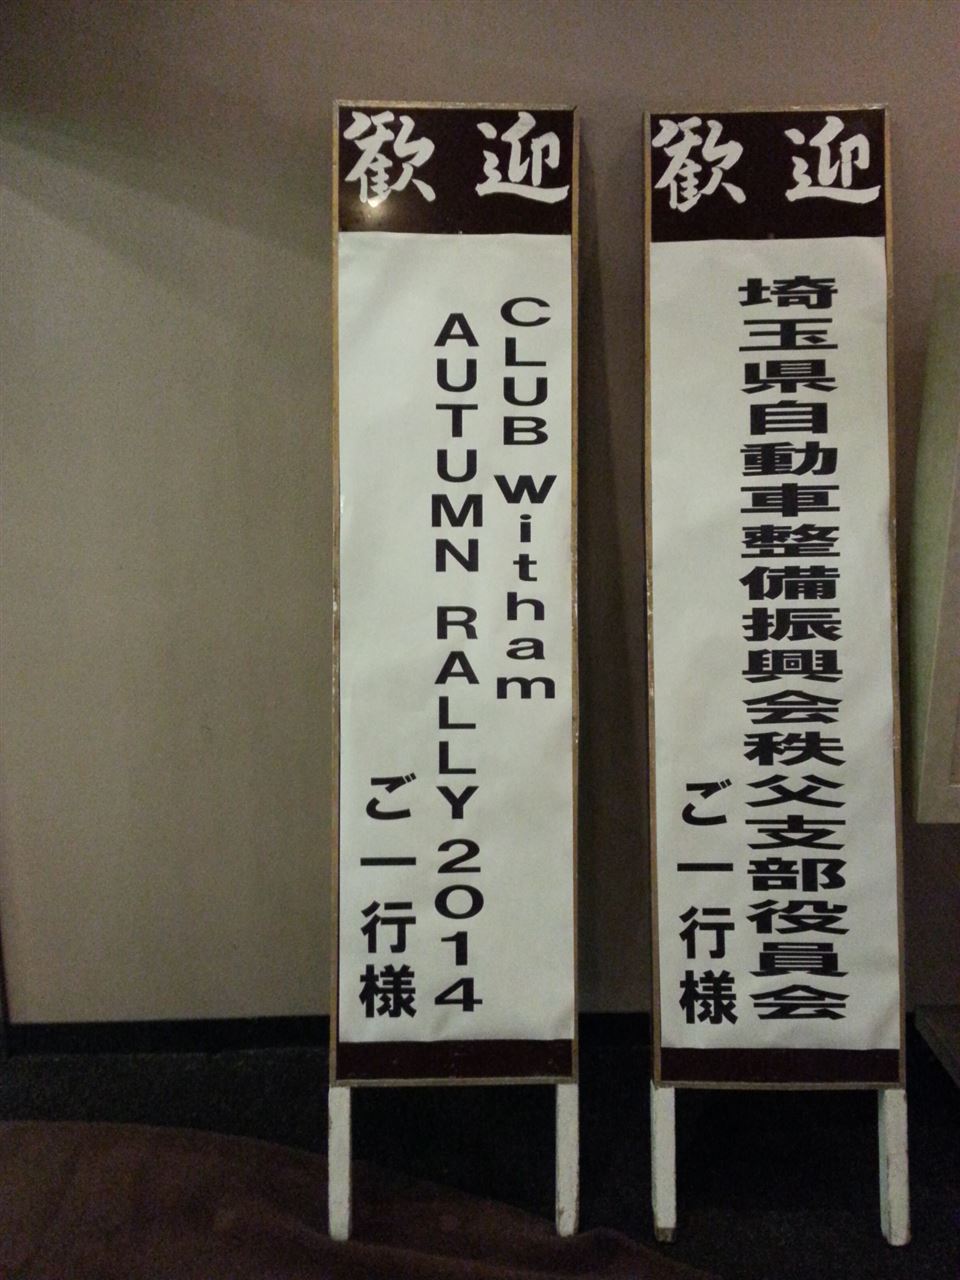 歓迎
CLUB Witham
AUTUMN RALLY2014
ご一行様
歓迎
埼玉県自動車整備振興会秩父支部役員会
ご一行様